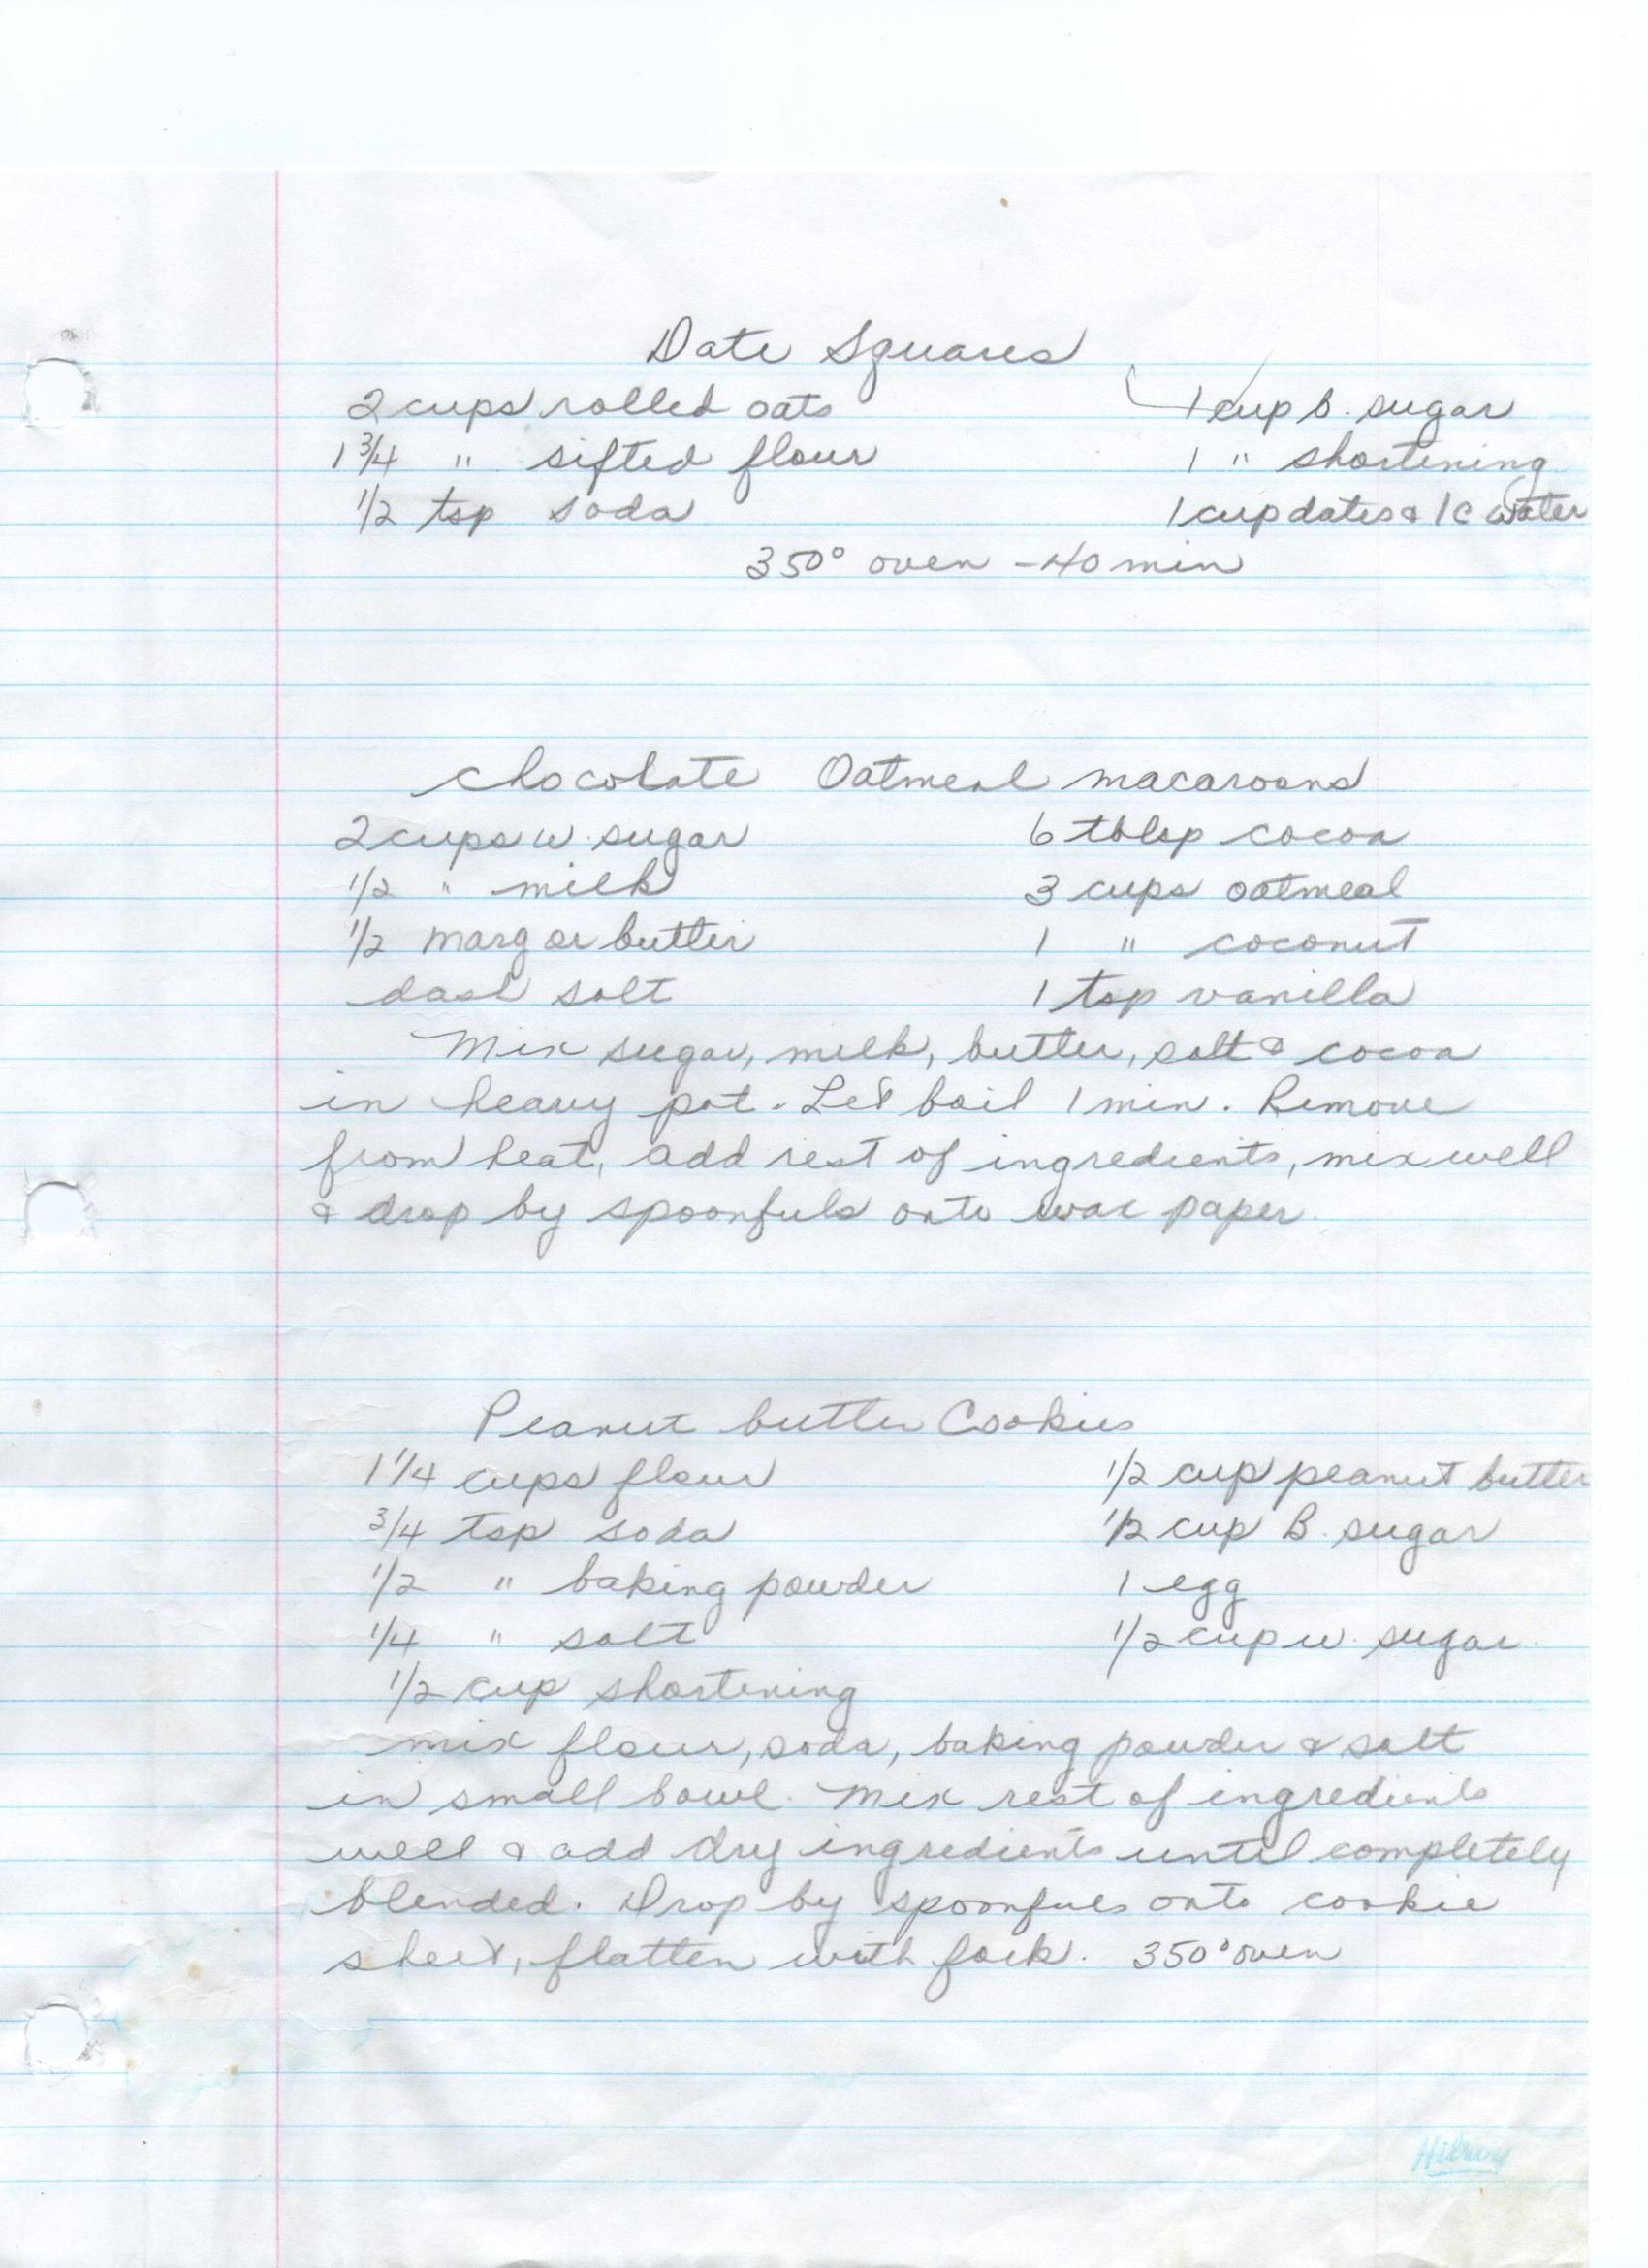 Date Squares
2 cups rolled oats 1 cup b. sugar
1 3/4 " sifted flour 1 " shortening
1/2 tsp soda 1 cup dates & 1 c water
350° oven - 40 min
Chocolate Oatmeal macaroons
2 cups w. sugar 6 tblsp cocoa
1/2 " milk 3 cups oatmeal
1/2 marg or butter 1 " coconut
dash salt 1 tsp vanilla
Mix sugar, milk, butter, salt & cocoa
in heavy pot. Let boil 1 min. Remove
from heat, add rest of ingredients, mix well
& drop by spoonfuls onto wax paper.
Peanut butter Cookies
1 1/4 cups flour 1/2 cup peanut butter
3/4 tsp soda 1/2 cup B. sugar
1/2 " baking powder 1 egg
1/4 " salt 1/2 cup w. sugar
1/2 cup shortening
mix flour, soda, baking powder & salt
in small bowl. Mix rest of ingredients
well & add dry ingredients until completely
blended. Drop by spoonfuls onto cookie
sheet, flatten with fork. 350° oven